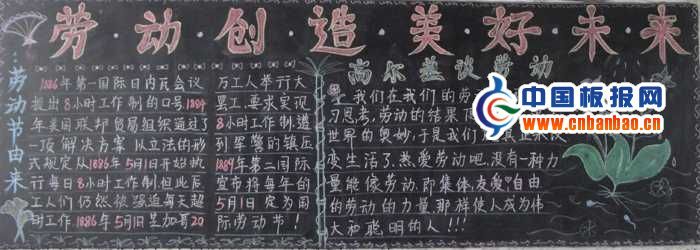 劳·动·创·造·美·好·未·来
劳动节由来
1886年第一国际日内瓦会议
提出8小时工作制的口号.1884
年美国联邦贸易组织通过了
一项解决方案以立法的形
式规定从1886年5月1日开始执
行每日8小时工作制.但此后
工人们仍然被强迫每天超
时工作1886年5月1日芝加哥20
万工人举行大
罢工,要求实现
8小时工作制遭
到军警的镇压
1889年第二国际
宣布将每年的
5月1日定为国
际劳动节!
高尔基谈劳动
我们在我们的劳
习思考,劳动的结果
世界的奥妙,于是我们
变生活了.热爱劳动吧.没有一种力
量能像劳动.即集体,友爱,自由
的劳动的力量,那样使人成为伟
大和聪明的人!!!
中国板报网
www.cnbanbao.cn